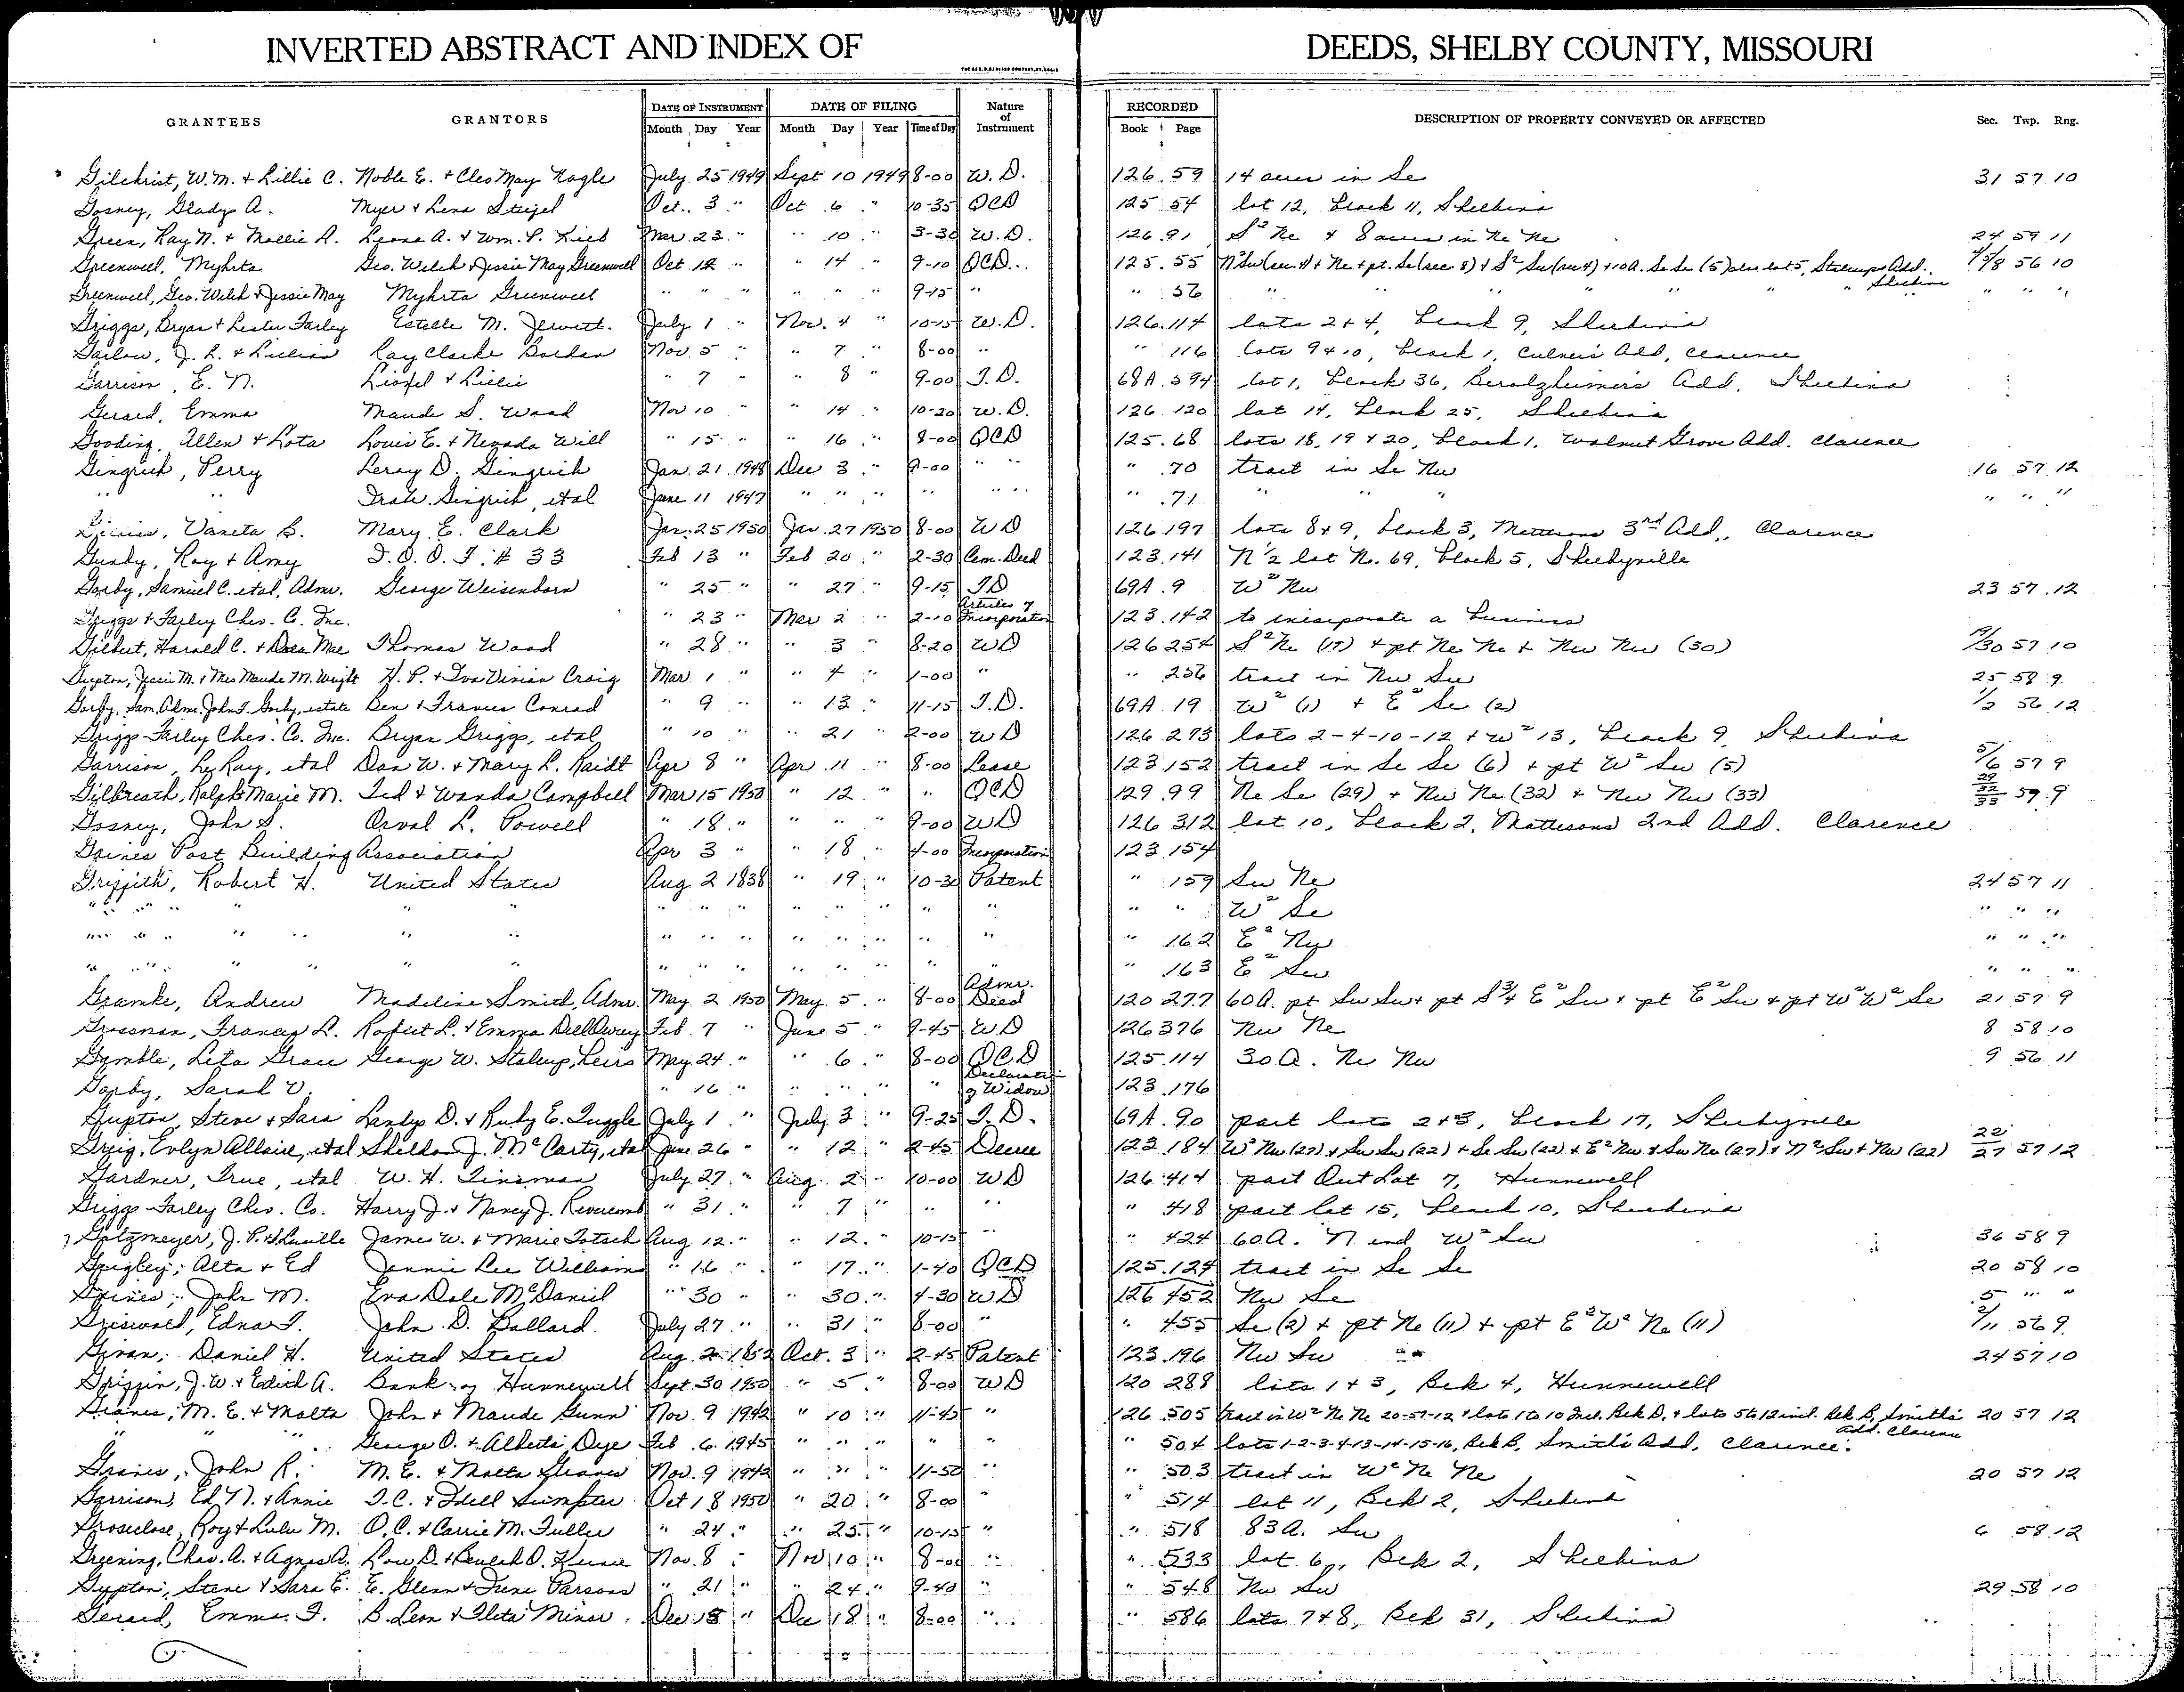 INVERTED ABSTRACT AND INDEX OF DEEDS, SHELBY COUNTY, MISSOURI
GRANTEES GRANTORS DATE OF INSTRUMENT DATE OF FILING Nature of Instrument RECORDED DESCRIPTION OF PROPERTY CONVEYED OR AFFECTED Sec. Twp. Rng.
Month Day Year Month Day Year Time of Day Book Page
Gilchrist, W.M. + Lillie C. Noble E. + Cleo May Nagle July 25 1949 Sept. 10 1949 8-00 W.D. 126 59 14 acres in Se 31 57 10
Gosney, Gladys A. Myer + Lena Steigel Oct. 3 " Oct 6 " 10-35 QCD 125 54 lot 12, block 11, Shelbina
Green, Ray N. + Mollie R. Leona A. + Wm. P. Mar. 23 " " 10 " 3-30 W.D. 126 91 S² Ne + 8 acres in Ne Ne 24 59 11
Greenwell, Myhrta Geo. Welch + Jessie May Greenwell Oct 12 " " 14 " 9-10 QCD 125 55 N² Sw (sec 4) + Ne + pt. Se (sec 8) + S² Sw (sec 4) + 10 A. Se Se (5) also lot 5, Stalcups Add. Shelbina 4/5/8 56 10
Greenwell, Geo. Welch + Jessie May Myhrta Greenwell " " " " " " 9-15 " " 56 " " " " " " " " "
Griggs, Bryan + Lester Farley Estelle M. Jewett July 1 " Nov. 4 " 10-15 W.D. 126 114 lots 2 + 4, block 9, Shelbina
Garlow, J. L. + Lillian Ray Clarke Nov. 5 " " 7 " 8-00 " " 116 lots 9 + 10, block 1, Culver's Add, Clarence
Garrison, E. N. + Lillie " 7 " " 8 " 9-00 T.D. 68A 594 lot 1, block 36, Beralzheimer's Add. Shelbina
Gerard, Emma Maude S. Wood Nov 10 " " 14 " 10-20 W.D. 126 120 lot 14, block 25, Shelbina
Gooding, Allen + Lota Louis E. + Nevada Will " 15 " " 16 " 8-00 QCD 125 68 lots 18, 19 + 20, block 1, Walnut Grove Add. Clarence
Gingrich, Perry Leroy D. Gingrich Jan. 21 1948 Dec 3 " 9-00 " " 70 tract in Se Nw 16 57 12
" " Gingrich, etal June 11 1947 " " " " " " 71 " " " " " "
Vaneta B. Mary E. Clark Jan. 25 1950 Jan. 27 1950 8-00 WD 126 197 lots 8 + 9, block 3, Mattesons 3rd Add., Clarence
Gundy, Roy + Amy I.O.O.F. # 33 Feb 13 " Feb 20 " 2-30 Cem. Deed 123 141 N 1/2 lot No. 69, block 5, Shelbyville
Gorby, Samuel C. etal, Admr. George Weisenborn " 25 " " 27 " 9-15 TD 69A 9 W² Nw 23 57 12
Griggs + Farley Chev. Co. Inc. " 23 " Mar 2 " 2-10 Articles of Incorporation 123 142 to incorporate a business
Gilbert, Harold C. + Dora Mae Thomas Wood " 28 " " 3 " 8-20 WD 126 254 S² Ne (19) + pt Ne Ne + Nw Nw (30) 19/30 57 10
Gupton, Jessie M. + Mrs Maude M. Wright H. P. + Iva Vivian Craig Mar. 1 " " 4 " 1-00 " " 256 tract in Nw Sw 25 58 9
Gorby, Sam, Admr. John T. Gorby, estate Ben + Frances Conrad " 9 " " 13 " 11-15 T.D. 69A 19 W² (1) + E² Se (2) 1/2 56 12
Griggs-Farley Chev. Co. Inc. Bryan Griggs, etal " 10 " " 21 " 2-00 WD 126 273 lots 2-4-10-12 + W² 13, block 9, Shelbina
Garrison, LeRay, etal Dan W. + Mary L. Raidt Apr 8 " Apr. 11 " 8-00 Lease 123 152 tract in Se Se (6) + pt W² Sw (5) 5/6 57 9
Gilbreath, Ralph + Marie M. Ted + Wanda Campbell Mar 15 1950 " 12 " " QCD 129 99 Ne Se (29) + Nw Ne (32) + Nw Nw (33) 29/32/33 59 9
Gosney, John S. Orval L. Powell " 18 " " " " 9-00 WD 126 312 lot 10, block 2, Mattesons 2nd Add. Clarence
Gaines Post Building Association Apr 3 " " 18 " 4-00 Incorporation 123 154
Griffith, Robert H. United States Aug 2 1838 " 19 " 10-30 Patent " 159 Sw Ne 24 57 11
" " " " " " " " " " " " " " " W² Se " " "
" " " " " " " " " " " " " " 162 E² Nw " " "
" " " " " " " " " " " " " " 163 E² Sw " " "
Gramke, Andrew Madeline Smith, Admr. May 2 1950 May 5 " 8-00 Admr. Deed 120 277 60 A. pt Sw Sw + pt S 3/4 E² Sw + pt E² Sw + pt W² W² Se 21 57 9
Grossman, Frances L. Robert L. + Emma Feb. 7 " June 5 " 9-45 WD 126 376 Nw Ne 8 58 10
Gamble, Leta Grace George W. Stalcup, heirs May 24 " " 6 " 8-00 QCD 125 114 30 A. Ne Nw 9 56 11
Gorby, Sarah V. " 16 " " " " " Declaration of Widow 123 176
Gupton, Steve + Sara Landys D. + Ruby E. Tuggle July 1 " July 3 " 9-25 T.D. 69A 90 part lots 2 + 3, block 17, Shelbyville
Greig, Evlyn Allaire, etal Sheldon J. McCarty, etal June 26 " " 12 " 2-45 Decree 123 184 W² Nw (27) + Sw Sw (22) + Se Sw (22) + E² Nw + Sw Ne (27) + N² Sw + Nw (22) 22/27 57 12
Gardner, True, etal W. H. Tinsman July 27 " Aug. 2 " 10-00 WD 126 414 part Out Lot 7, Hunnewell
Griggs-Farley Chev. Co. Harry J. + Nancy J. Revercomb " 31 " " 7 " " " " 418 part lot 15, block 10, Shelbina
Gotzmeyer, J. P. + Lucille James W. + Marie Totsch Aug. 12 " " 12 " 10-15 " " 424 60 A. N end W² Sw 36 58 9
Grigley, Alta + Ed Jennie Lee Williams " 16 " " 17 " 1-40 QCD 125 124 tract in Se Se 20 58 10
Gaines, John M. Eva Dale McDaniel " 30 " " 30 " 4-30 WD 126 452 Nw Se 5 " "
Griswold, Edna F. John D. Ballard July 27 " " 31 " 8-00 " " 455 Se (2) + pt Ne (11) + pt E² W² Ne (11) 2/11 56 9
Givan, Daniel H. United States Aug. 2 1852 Oct. 3 " 2-45 Patent 123 196 Nw Sw 24 57 10
Griffin, J. W. + Edith A. Bank of Hunnewell Sept. 30 1950 " 5 " 8-00 WD 120 288 lots 1 + 3, Blk 4, Hunnewell
Graves, M. E. + Malta John + Maude Gunn Nov. 9 1942 " 10 " 11-45 " 126 505 tract in W² Ne Ne 20-57-12 + lots 1 to 10 Incl. Blk D, + lots 5 to 12 incl. Blk B, Smith's Add. Clarence 20 57 12
" " " George O. + Alberta Dye Feb. 6 1945 " " " " " " 504 lots 1-2-3-4-13-14-15-16, Blk B, Smith's Add, Clarence.
Graves, John R. M. E. + Malta Graves Nov. 9 1942 " " " 11-50 " " 503 tract in W² Ne Ne 20 57 12
Garrison, Ed N. + Annie T. C. + Idell Sumpter Oct 18 1950 " 20 " 8-00 " " 514 lot 11, Blk 2, Shelbina
Groseclose, Roy + Lulu M. O. C. + Carrie M. Fuller " 24 " " 25 " 10-15 " " 518 83 A. Sw 6 58 12
Greening, Chas. A. + Agnes A. Low D. + Nov. 8 " Nov 10 " 8-00 " " 533 lot 6, Blk 2, Shelbina
Gupton, Steve + Sara E. E. Glenn + June Parsons " 21 " " 24 " 9-40 " " 548 Nw Sw 29 58 10
Gerard, Emma F. B. Leon + Fleta Minor Dec 18 " Dec 18 " 8-00 " " 586 lots 7 + 8, Blk 31, Shelbina